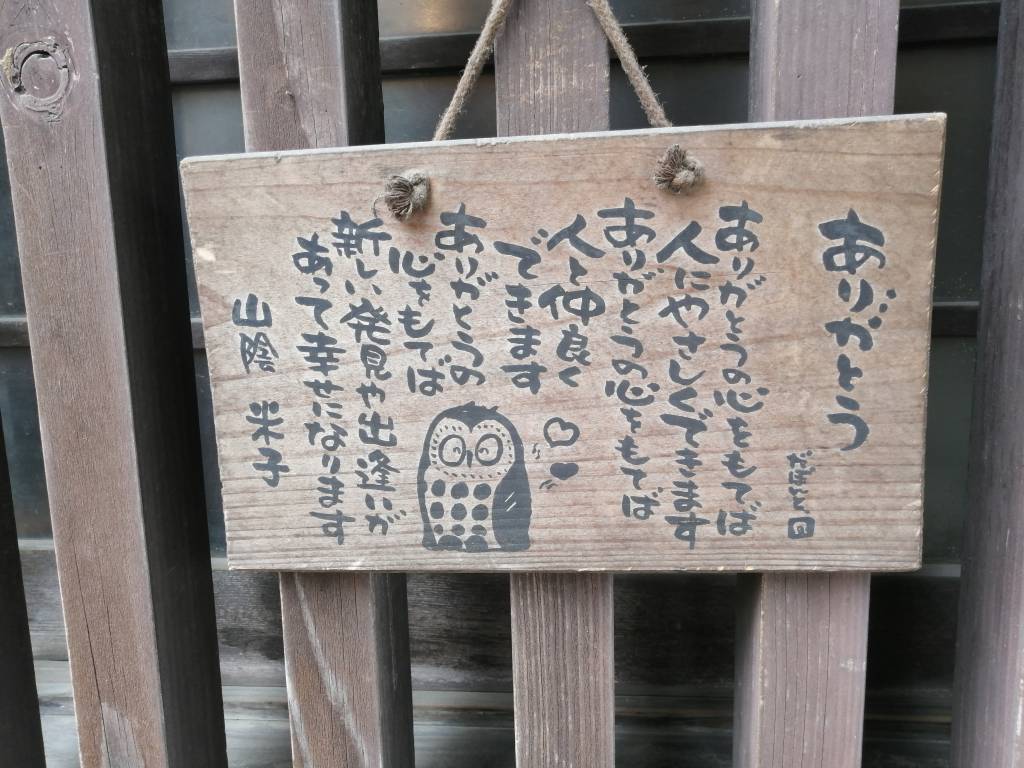 ありがとう
ありがとうの心をもてば
人にやさしくできます
ありがとうの心をもてば
人と仲良く
できます
ありがとうの
心をもてば
新しい発見や出逢いが
あって幸せになります
山陰 米子